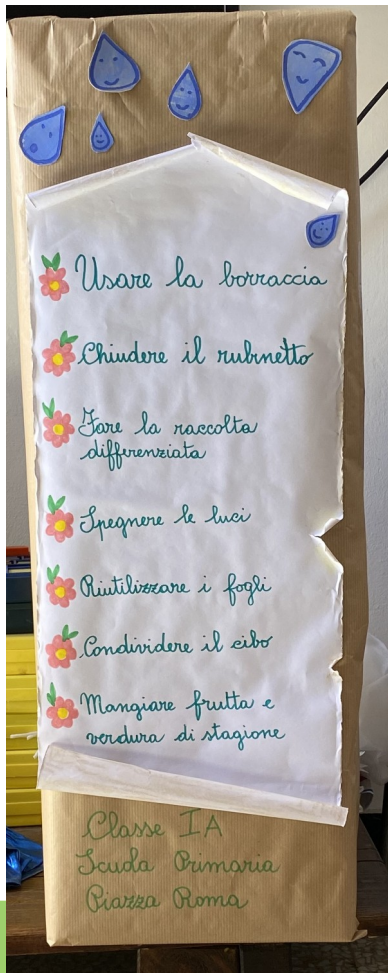 Usare la borraccia
Chiudere il rubinetto
Fare la raccolta
differenziata
Spegnere le luci
Riutilizzare i fogli
Condividere il cibo
Mangiare frutta e
verdura di stagione
Classe IA
Scuola Primaria
Piazza Roma